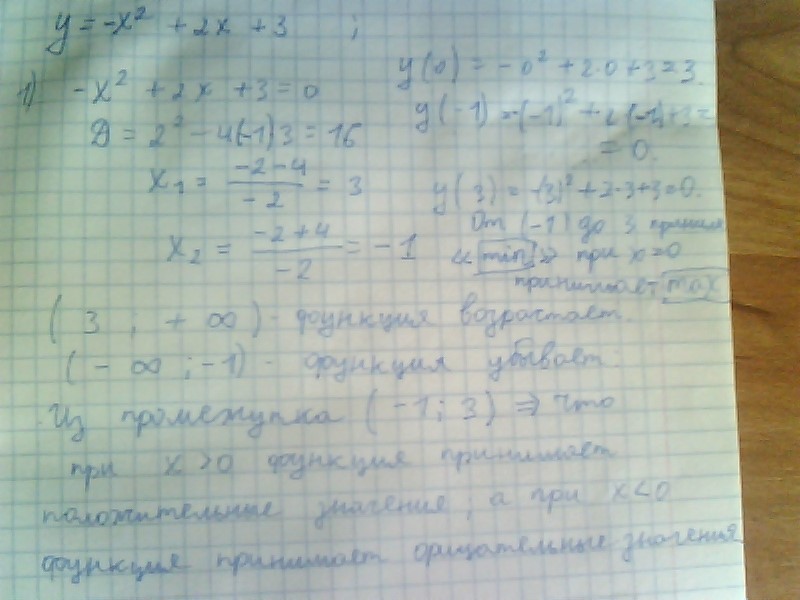 y = -x² + 2x + 3 ;
1) -x² + 2x + 3 = 0
D = 2² - 4(-1)3 = 16
x₁ = (-2-4)/(-2) = 3
x₂ = (-2+4)/(-2) = -1
y(0) = -0² + 2·0 + 3 = 3.
y(-1) = -(-1)² + 2(-1)+3 =
= 0.
y(3) = -(3)² + 2·3+3=0.
От (-1) до 3 приним
« min » при x=0
принимает max
(3 ; +∞) - функция возрастает.
(-∞ ; -1) - функция убывает.
Из промежутка (-1; 3) ⇒ что
при x>0 функция принимает
положительные значения, а при x<0
функция принимает орицательные значения